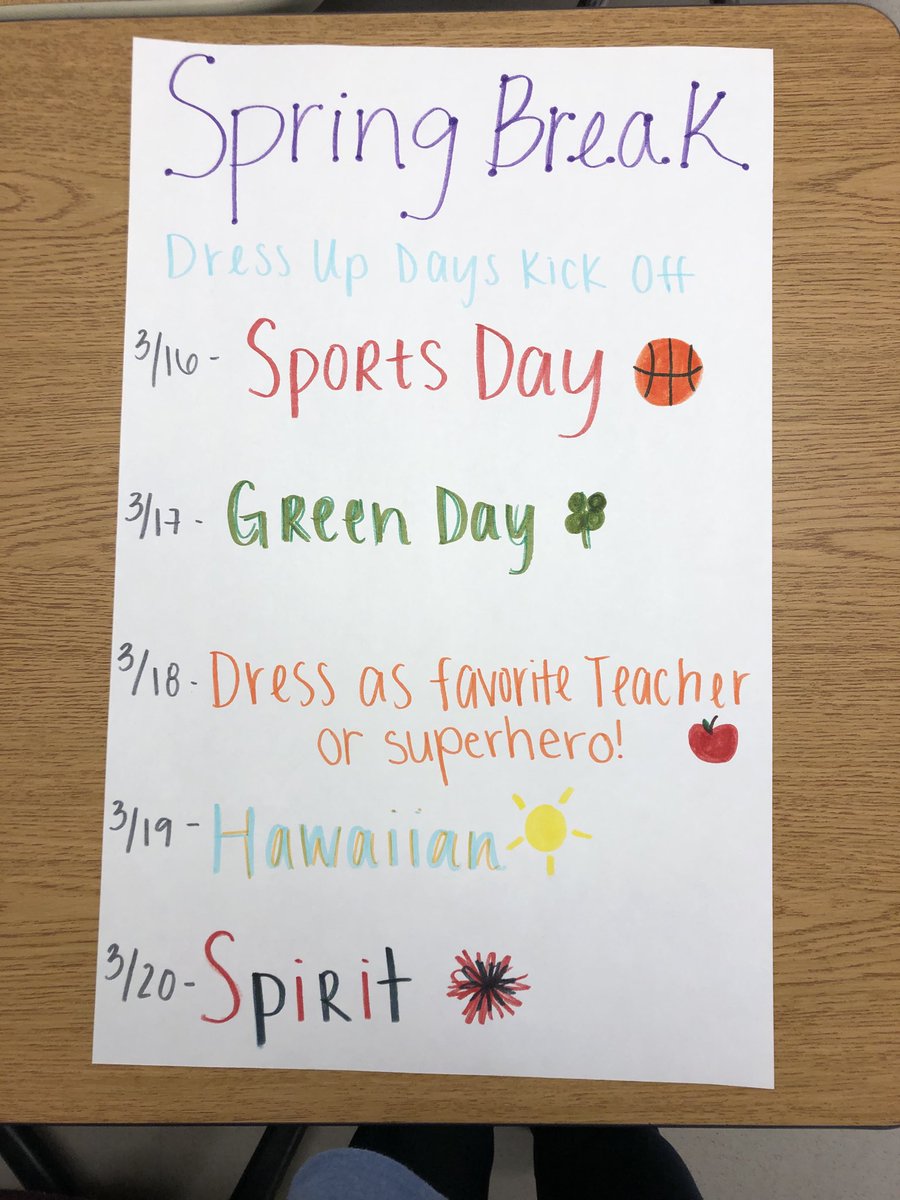 Spring Break
Dress Up Days Kick Off
3/16 - Sports Day
3/17 - Green Day
3/18 - Dress as favorite Teacher
or superhero!
3/19 - Hawaiian
3/20 - Spirit